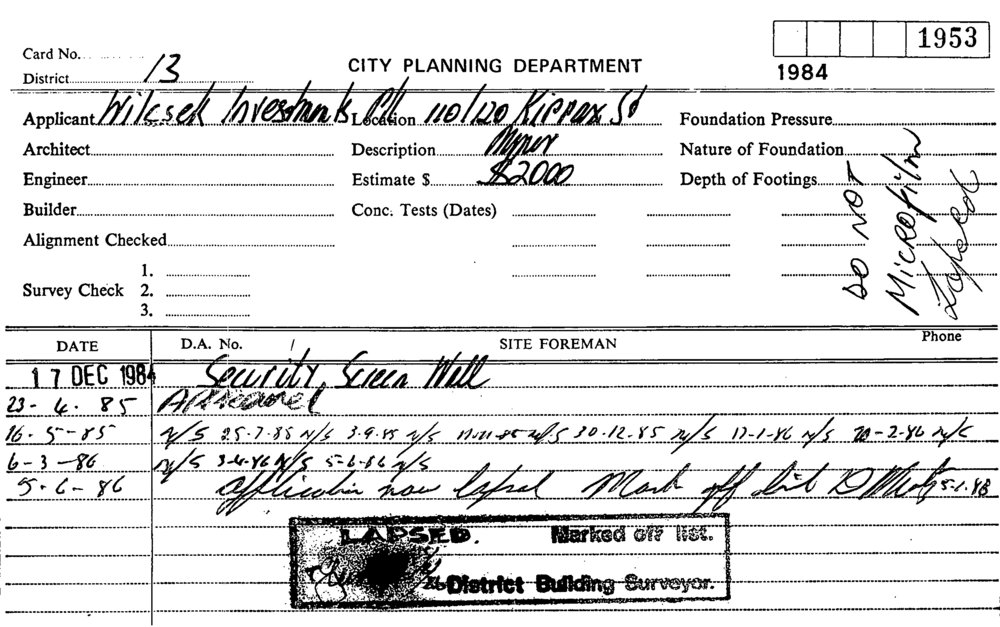 1953
Card No.
CITY PLANNING DEPARTMENT
1984
District 13
Applicant Wilcsek Investments P/L Location 110/120 Kippax St Foundation Pressure
Architect Description Nature of Foundation
Engineer Estimate $ $2000 Depth of Footings
Builder Conc. Tests (Dates)
Alignment Checked
1.
Survey Check 2.
3.
DO NOT
Microfilm
Lapsed
DATE D.A. No. SITE FOREMAN Phone
17 DEC 1984 Security Screen Wall
23-4.85 Approved
16-5-85 N/S 25-7-85 N/S 3-9-85 N/S N/S 30-12-85 N/S 17-1-86 N/S 20-2-86 N/S
6-3-86 N/S 3-4-86 N/S 5-6-86 N/S
5-6-86 Application now lapsed Mark off list
LAPSED. Marked off list.
District Building Surveyor.